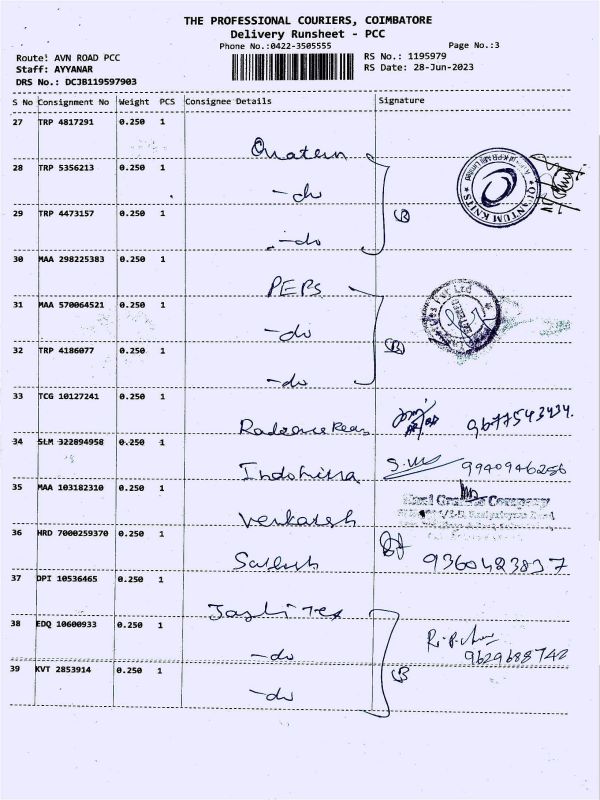 THE PROFESSIONAL COURIERS, COIMBATORE
Delivery Runsheet - PCC
Phone No.:0422-3505555
Page No.:3
Route: AVN ROAD PCC
RS No.: 1195979
Staff: AYYANAR
RS Date: 28-Jun-2023
DRS No.: DCJB119597903
S No Consignment No Weight PCS Consignee Details Signature
27 TRP 4817291 0.250 1
QUANTUM KNITS
28 TRP 5356213 0.250 1
-do
29 TRP 4473157 0.250 1
-do
30 MAA 298225383 0.250 1
PEPS
31 MAA 570064521 0.250 1
-do
32 TRP 4186077 0.250 1
-do
33 TCG 10127241 0.250 1
34 SLM 322894958 0.250 1
9940946256
35 MAA 103182310 0.250 1
Venkatesh
36 HRD 7000259370 0.250 1
9360423837
37 DPI 10536465 0.250 1
38 EDQ 10600933 0.250 1
-do
9629688742
39 KVT 2853914 0.250 1
-do